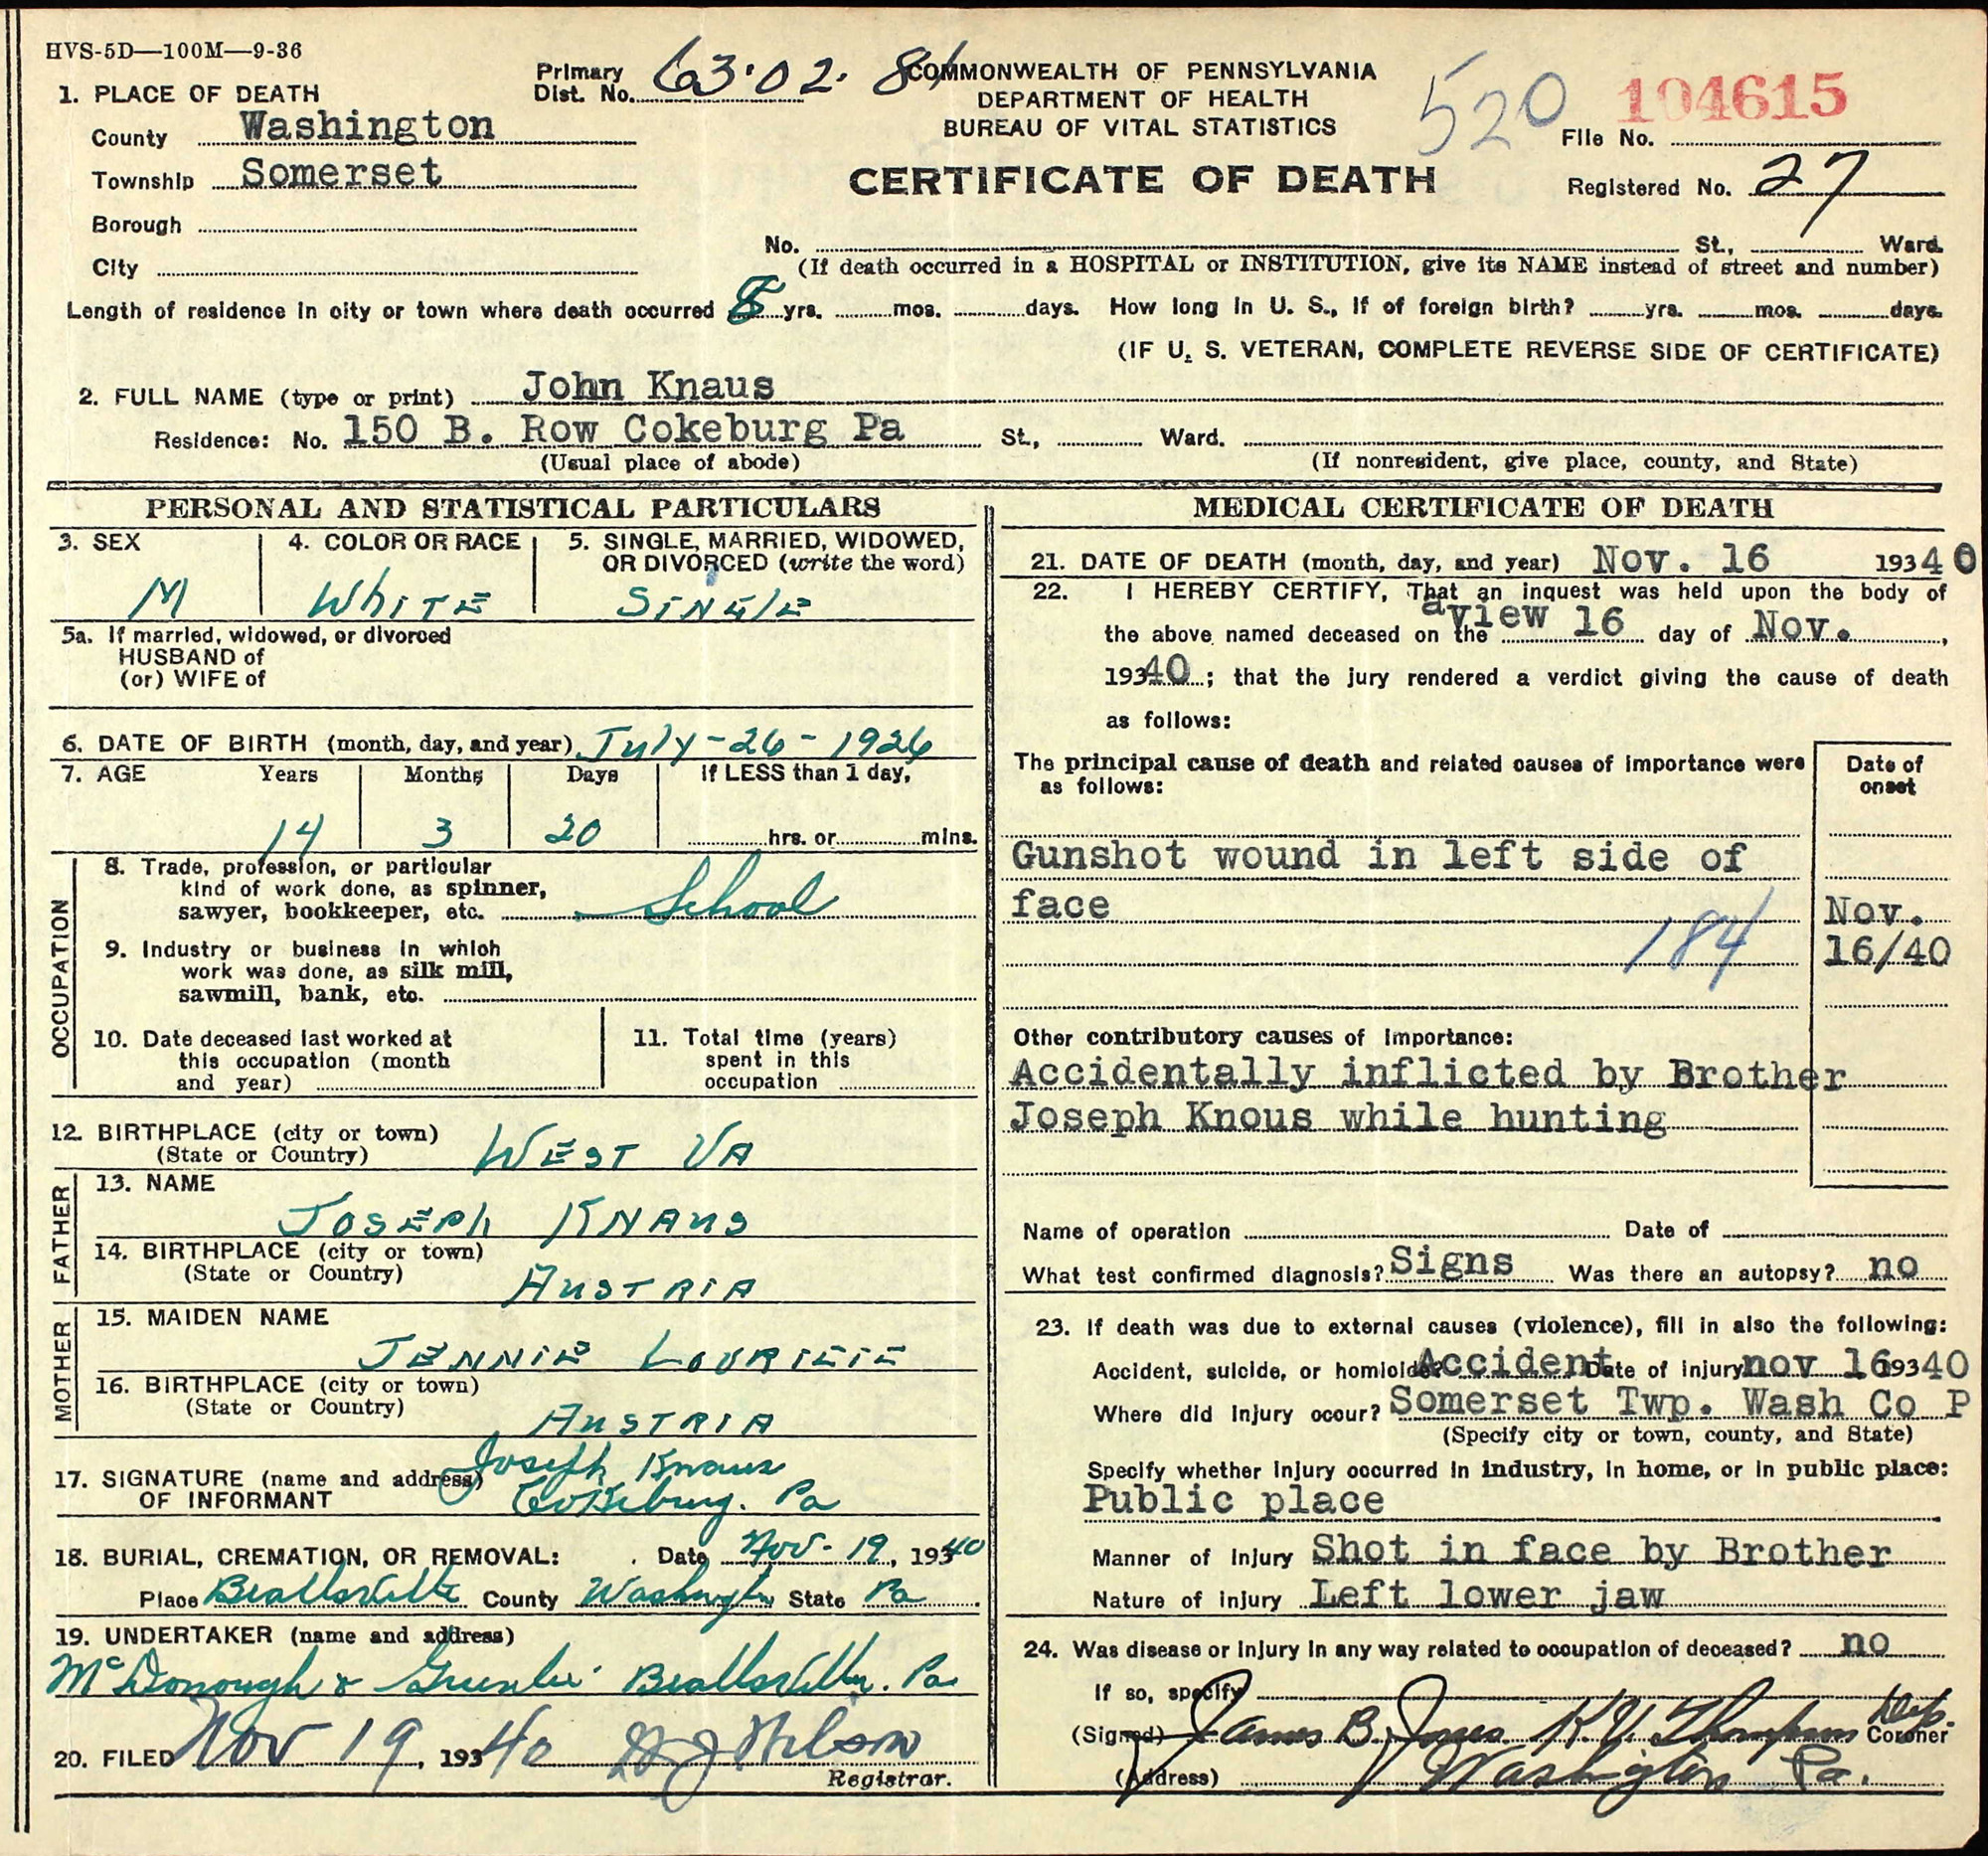 HVS-5D—100M—9-36
Primary Dist. No. 63-02-81
COMMONWEALTH OF PENNSYLVANIA
DEPARTMENT OF HEALTH
BUREAU OF VITAL STATISTICS
CERTIFICATE OF DEATH
520
104615
File No.
Registered No. 27
1. PLACE OF DEATH
County Washington
Township Somerset
Borough
City
No. St., Ward.
(If death occurred in a HOSPITAL or INSTITUTION, give its NAME instead of street and number)
Length of residence in city or town where death occurred 8 yrs. mos. days. How long in U. S., if of foreign birth? yrs. mos. days.
(IF U. S. VETERAN, COMPLETE REVERSE SIDE OF CERTIFICATE)
2. FULL NAME (type or print) John Knaus
Residence: No. 150 B. Row Cokeburg Pa St., Ward.
(Usual place of abode) (If nonresident, give place, county, and State)
PERSONAL AND STATISTICAL PARTICULARS
3. SEX
M
4. COLOR OR RACE
White
5. SINGLE, MARRIED, WIDOWED,
OR DIVORCED (write the word)
Single
5a. If married, widowed, or divorced
HUSBAND of
(or) WIFE of
6. DATE OF BIRTH (month, day, and year) July-26-1926
7. AGE Years Months Days If LESS than 1 day,
14 3 20 hrs. or mins.
OCCUPATION
8. Trade, profession, or particular
kind of work done, as spinner,
sawyer, bookkeeper, etc. School
9. Industry or business in which
work was done, as silk mill,
sawmill, bank, etc.
10. Date deceased last worked at
this occupation (month
and year)
11. Total time (years)
spent in this
occupation
12. BIRTHPLACE (city or town)
(State or Country) WEST VA
FATHER
13. NAME
JOSEPH KNAUS
14. BIRTHPLACE (city or town)
(State or Country) AUSTRIA
MOTHER
15. MAIDEN NAME
JENNIE
16. BIRTHPLACE (city or town)
(State or Country) AUSTRIA
17. SIGNATURE (name and address) Joseph Knaus
OF INFORMANT Cokeburg. Pa
18. BURIAL, CREMATION, OR REMOVAL: Date Nov-19, 19340
Place Beallsville County Washington State Pa.
19. UNDERTAKER (name and address)
McDonough & Greenlee Beallsville. Pa
20. FILED Nov 19, 19340 Wilson
Registrar.
MEDICAL CERTIFICATE OF DEATH
21. DATE OF DEATH (month, day, and year) Nov. 16 19340
22. I HEREBY CERTIFY, That an inquest was held upon the body of
a view
the above named deceased on the 16 day of Nov.,
19340; that the jury rendered a verdict giving the cause of death
as follows:
The principal cause of death and related causes of importance were
as follows:
Date of
onset
Gunshot wound in left side of
face
184
Nov.
16/40
Other contributory causes of importance:
Accidentally inflicted by Brother
Joseph Knous while hunting
Name of operation Date of
What test confirmed diagnosis? Signs Was there an autopsy? no
23. If death was due to external causes (violence), fill in also the following:
Accident, suicide, or homicide? Accident Date of injury nov 16 19340
Where did injury occur? Somerset Twp. Wash Co P
(Specify city or town, county, and State)
Specify whether injury occurred in industry, in home, or in public place:
Public place
Manner of injury Shot in face by Brother
Nature of injury Left lower jaw
24. Was disease or injury in any way related to occupation of deceased? no
If so, specify
(Signed) James B. Jones. K.V. Thompson Dep. Coroner
(Address) Washington Pa.